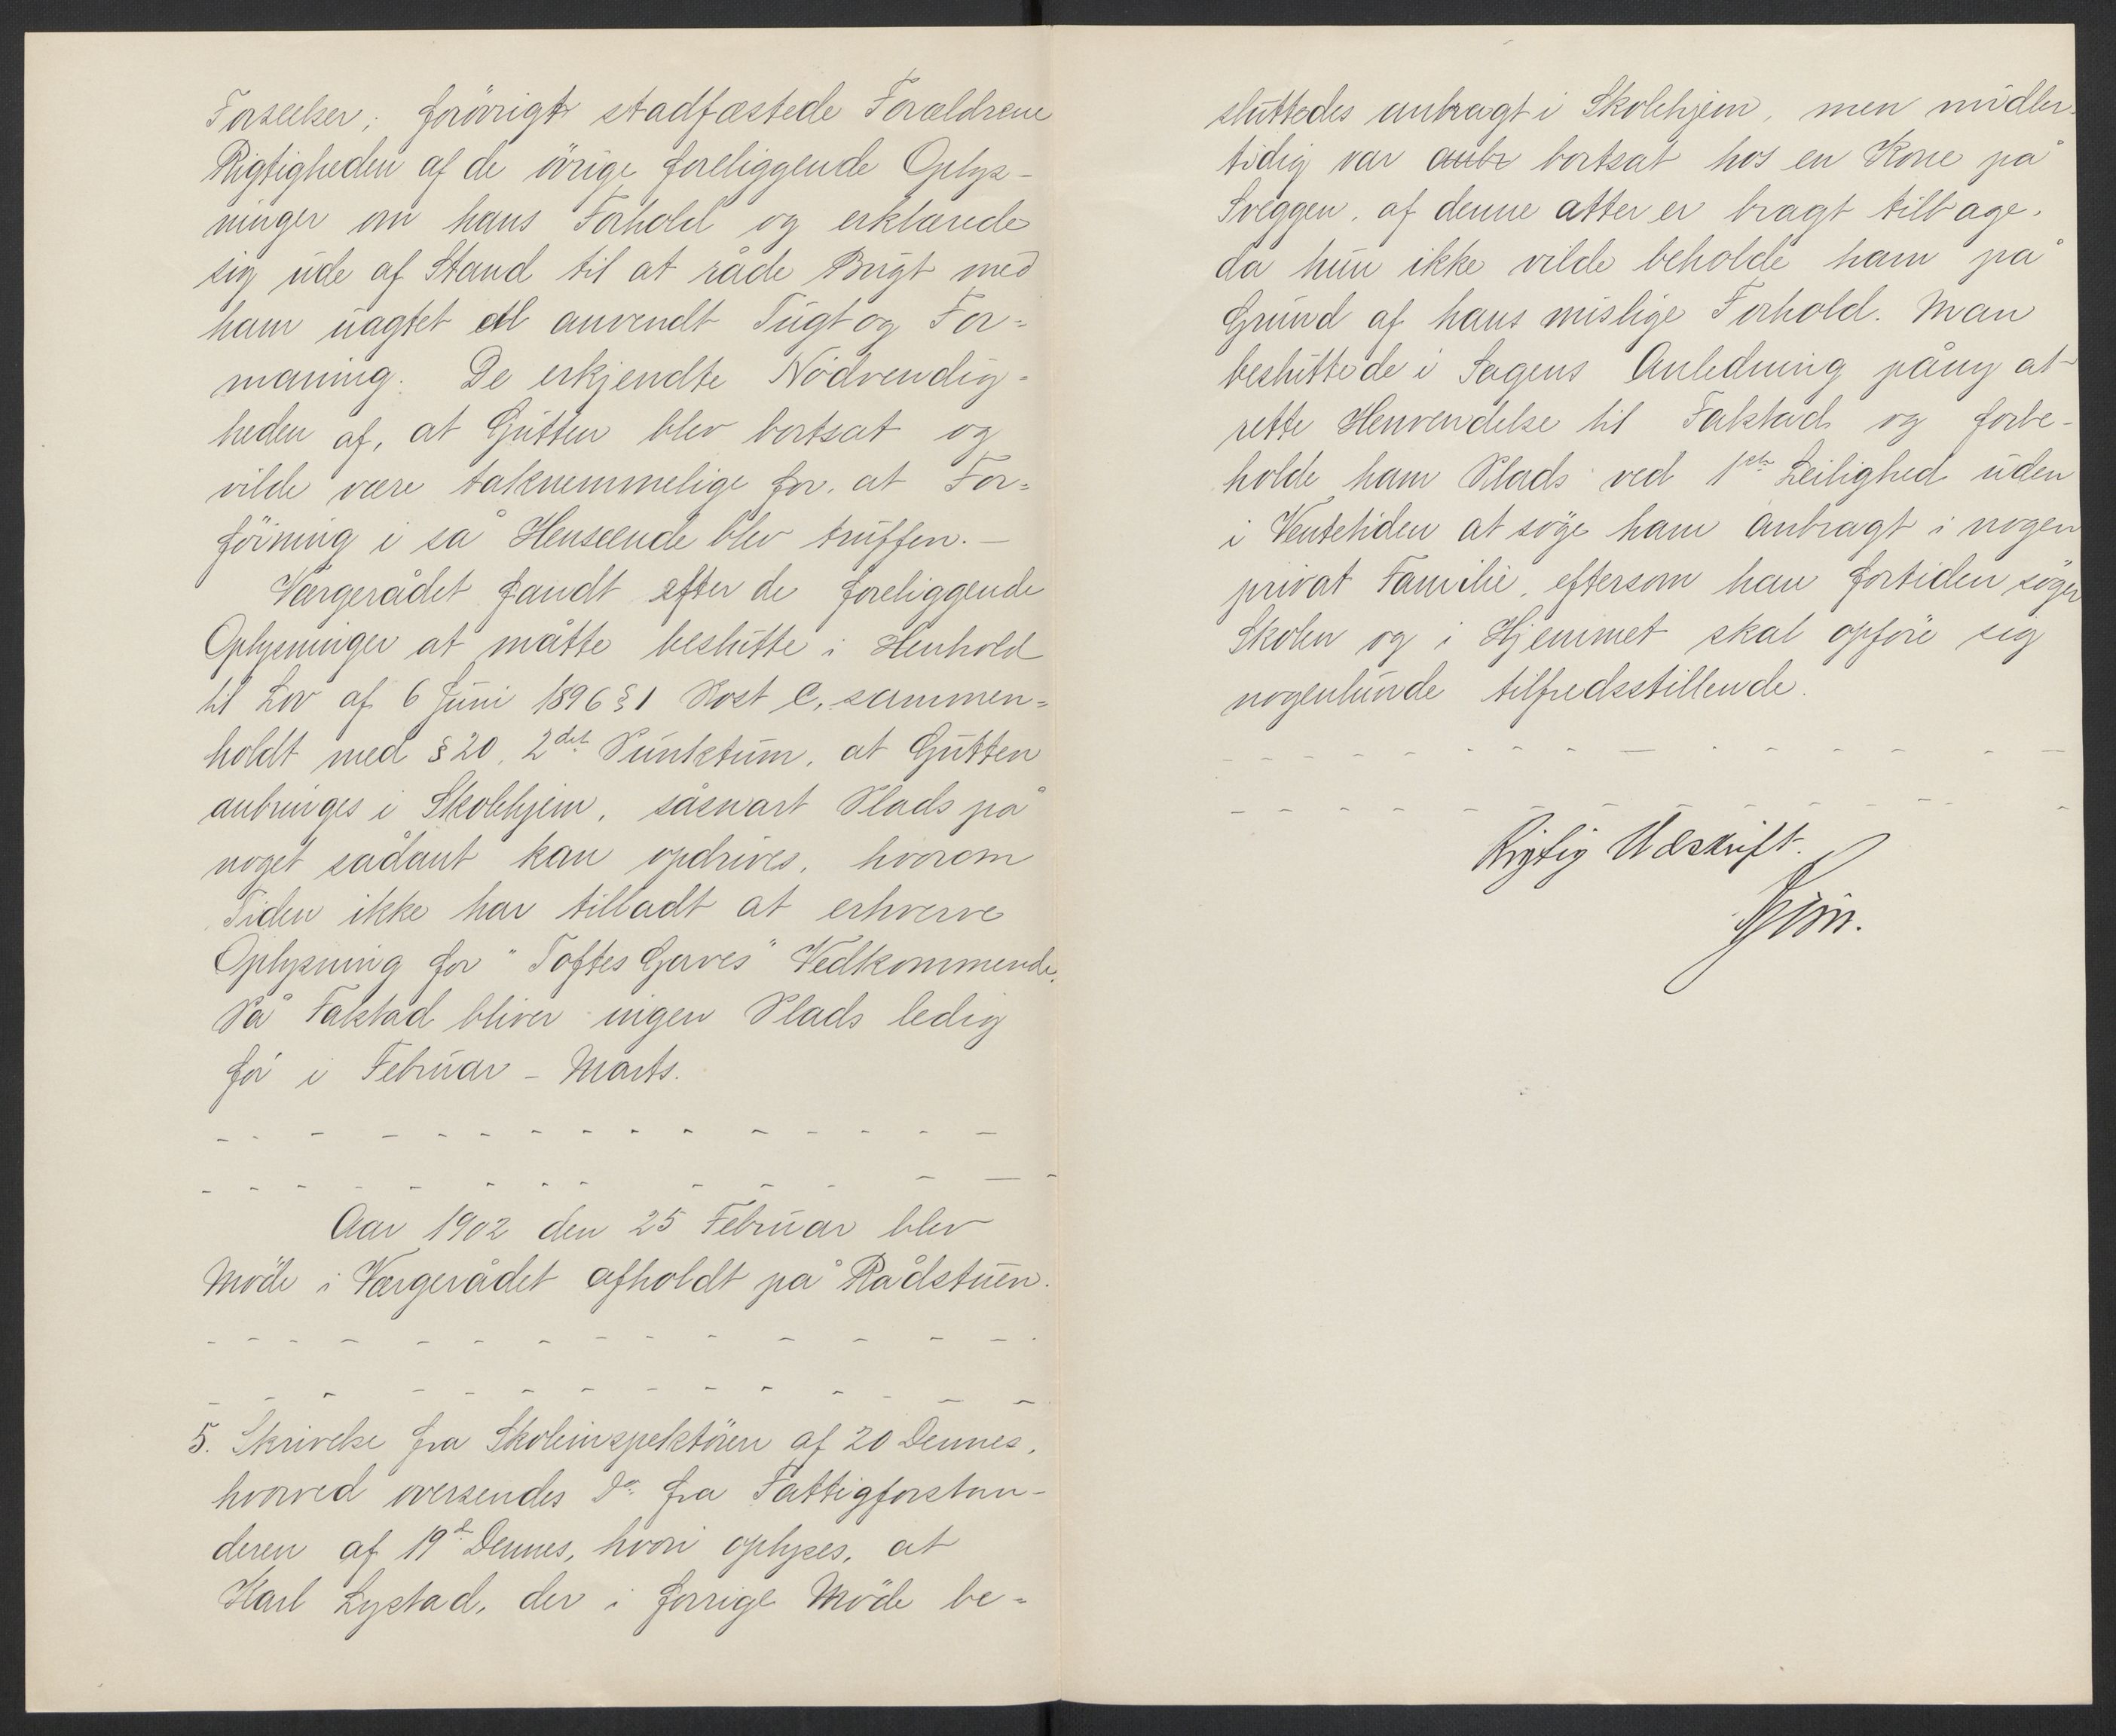 Forseelser; forövrigt stadfæstede Forældrene
Rigtigheden af de övrige foreliggende Oplys-
ninger om hans Forhold og erklærede
sig ude af Stand til at råde Bugt med
ham uagtet al anvendt Tugt og For=
maning. De erkjendte Nödvendig=
heden af, at Gutten blev bortsat og
vilde være taknemmelige for, at For=
föining i så Henseende blev truffen. —
Værgerådet fandt efter de foreliggende
Oplysninger at måtte beslutte i Henhold
til Lov af 6 Juni 1896 § 1 Post C, sammen=
holdt med § 20, 2det Punktum, at Gutten
anbringes i Skolehjem, såsnart Plads på
noget sådant kan opdrives, hvorom
Tiden ikke har tilladt at erhverve
Oplysning for "Toftes Gaves" Vedkommende.
På Falstad bliver ingen Plads ledig
för i Februar - Marts.
Aar 1902 den 25 Februar blev
Möde i Værgerådet afholdt på Rådstuen.
5. Skrivelse fra Skoleinspektören af 20 Dennes,
hvorved oversendes Do fra Fattigforstan-
deren af 19d Dennes, hvori oplyses, at
Karl Lystad, der i forrige Möde be=
sluttedes anbragt i Skolehjem, men midler-
tidig var anbr bortsat hos en Kone på
Sveggen, af denne atter er bragt tilbage,
da hun ikke vilde beholde ham på
Grund af hans mislige Forhold. Man
besluttede i Sagens Anledning påny at
rette Henvendelse til Falstad og forbe-
holde ham Plads ved 1ste Leilighed uden
i Ventetiden at söge ham anbragt i nogen
privat Familie, eftersom han fortiden söger
Skolen og i Hjemmet skal opföre sig
nogenlunde tilfredsstillende.
Rigtig Udskrift.